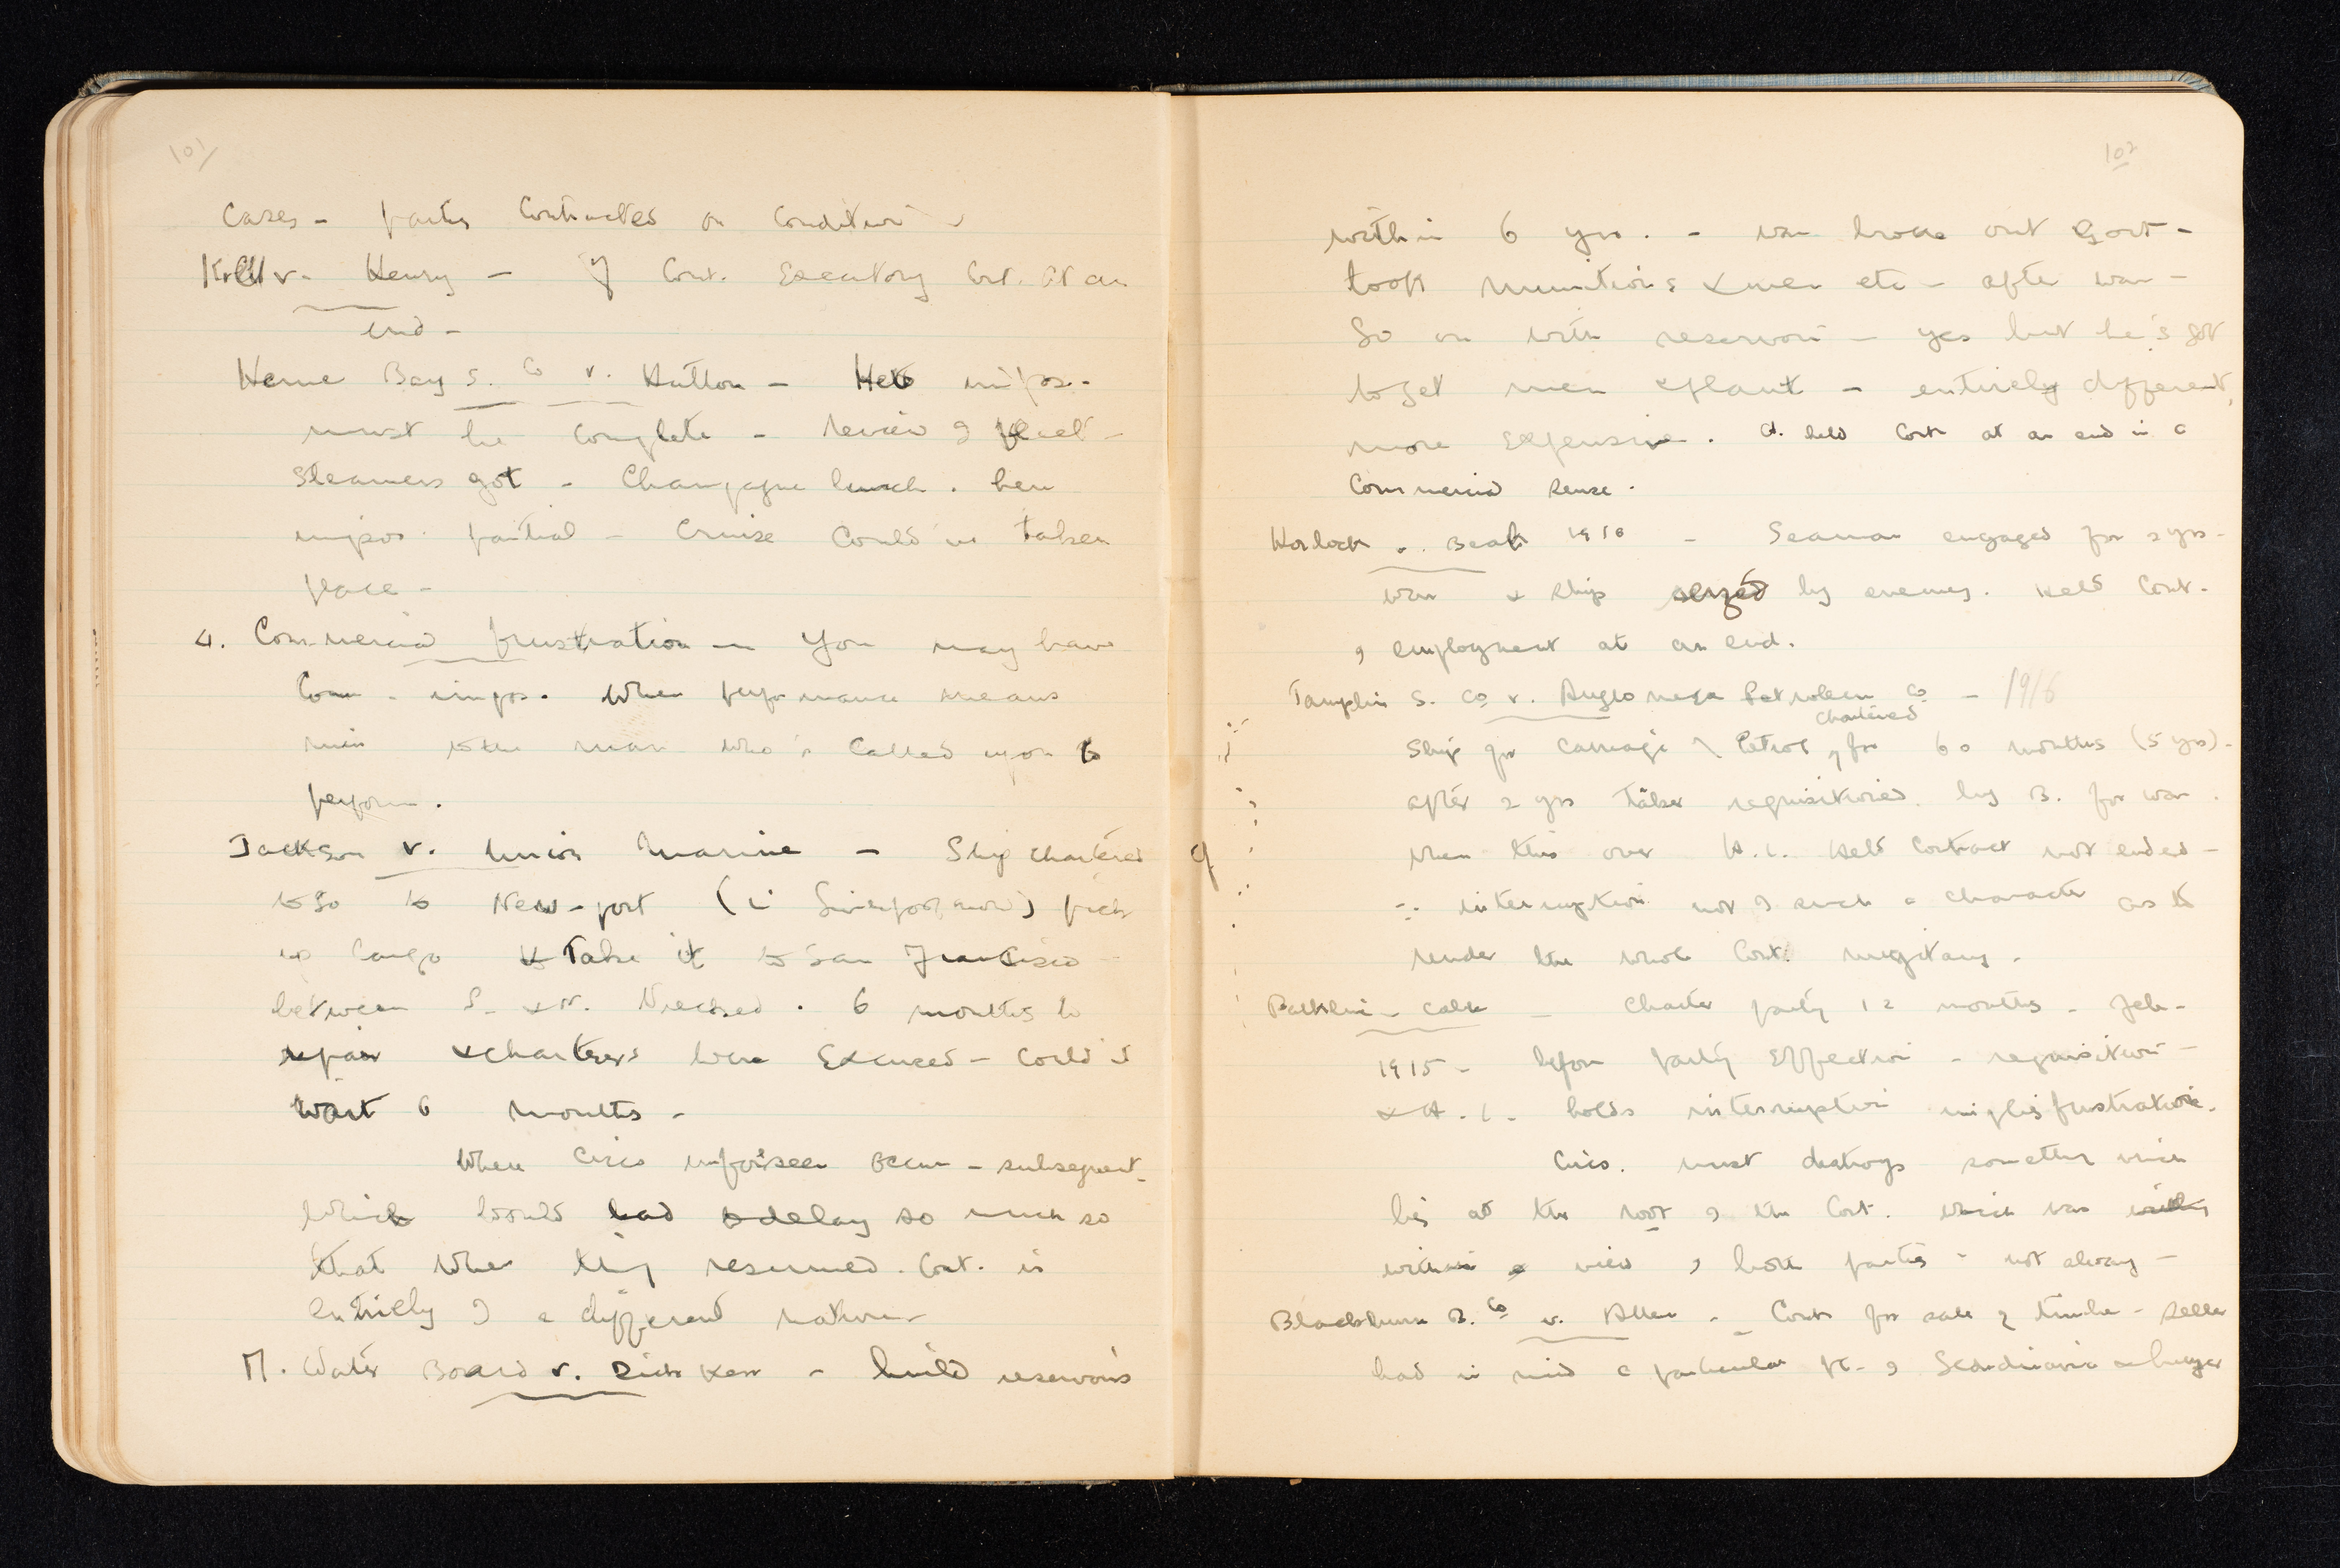 101
Cases - parties contracted on condition -
Krell v. Henry - If Cont. Executory Cont. at an
end -
Herne Bay S. Co v. Hutton - Held impos.
must be complete - review of fleet -
Steamers got - Champagne lunch. here
impos. partial - Cruise could've taken
place -
4. Commercial frustration - You may have
Comm. impos. When performance means
ruin to the man who's called upon to
perform.
Jackson v. Union Marine - Ship chartered
to go to New-port (in Liverpool now) pick
up Cargo & take it to San Francisco -
between L. & N. Wrecked. 6 months to
repair & charterers were Excused - Could'nt
wait 6 months -
When circs unforseen occur - subsequent
which would lead to delay so much so
that when thing resumed. Cont. is
entirely of a different nature -
M. Water Board v. Dick Kerr - build reservoirs
102
within 6 yrs. - war broke out Govt -
took munitions & men etc - after war -
Go on with reservoir - yes but he's got
to get men & plant - entirely different,
more expensive. Ct. held Cont at an end in a
Commercial sense.
Horlock v. Beal 1916 - Seaman engaged for 2 yrs -
war & ship seized by enemy. Held Cont.
of employment at an end.
Tamplin S. Co v. Anglo Mexn Petroleum Co - 1916
chartered
Ship for carriage of Petrol, for 60 months (5 yrs) -
after 2 yrs taken requisitioned by B. for war.
when this over H.L. Held Contract not ended -
∵ interruption not of such a character as to
render the whole Cont. nugatory.
case - Charter party 12 months - Feb -
1915 - before party Effection - requisition -
& H.L. holds interruption implies frustration.
Circs. must destroy something which
lies at the root of the Cont. which was
within view of both parties - not always -
Blackburn B. Co v. Allen - Cont for sale of timber - seller
had in mind a particular pt. of Scandinavia & buyer